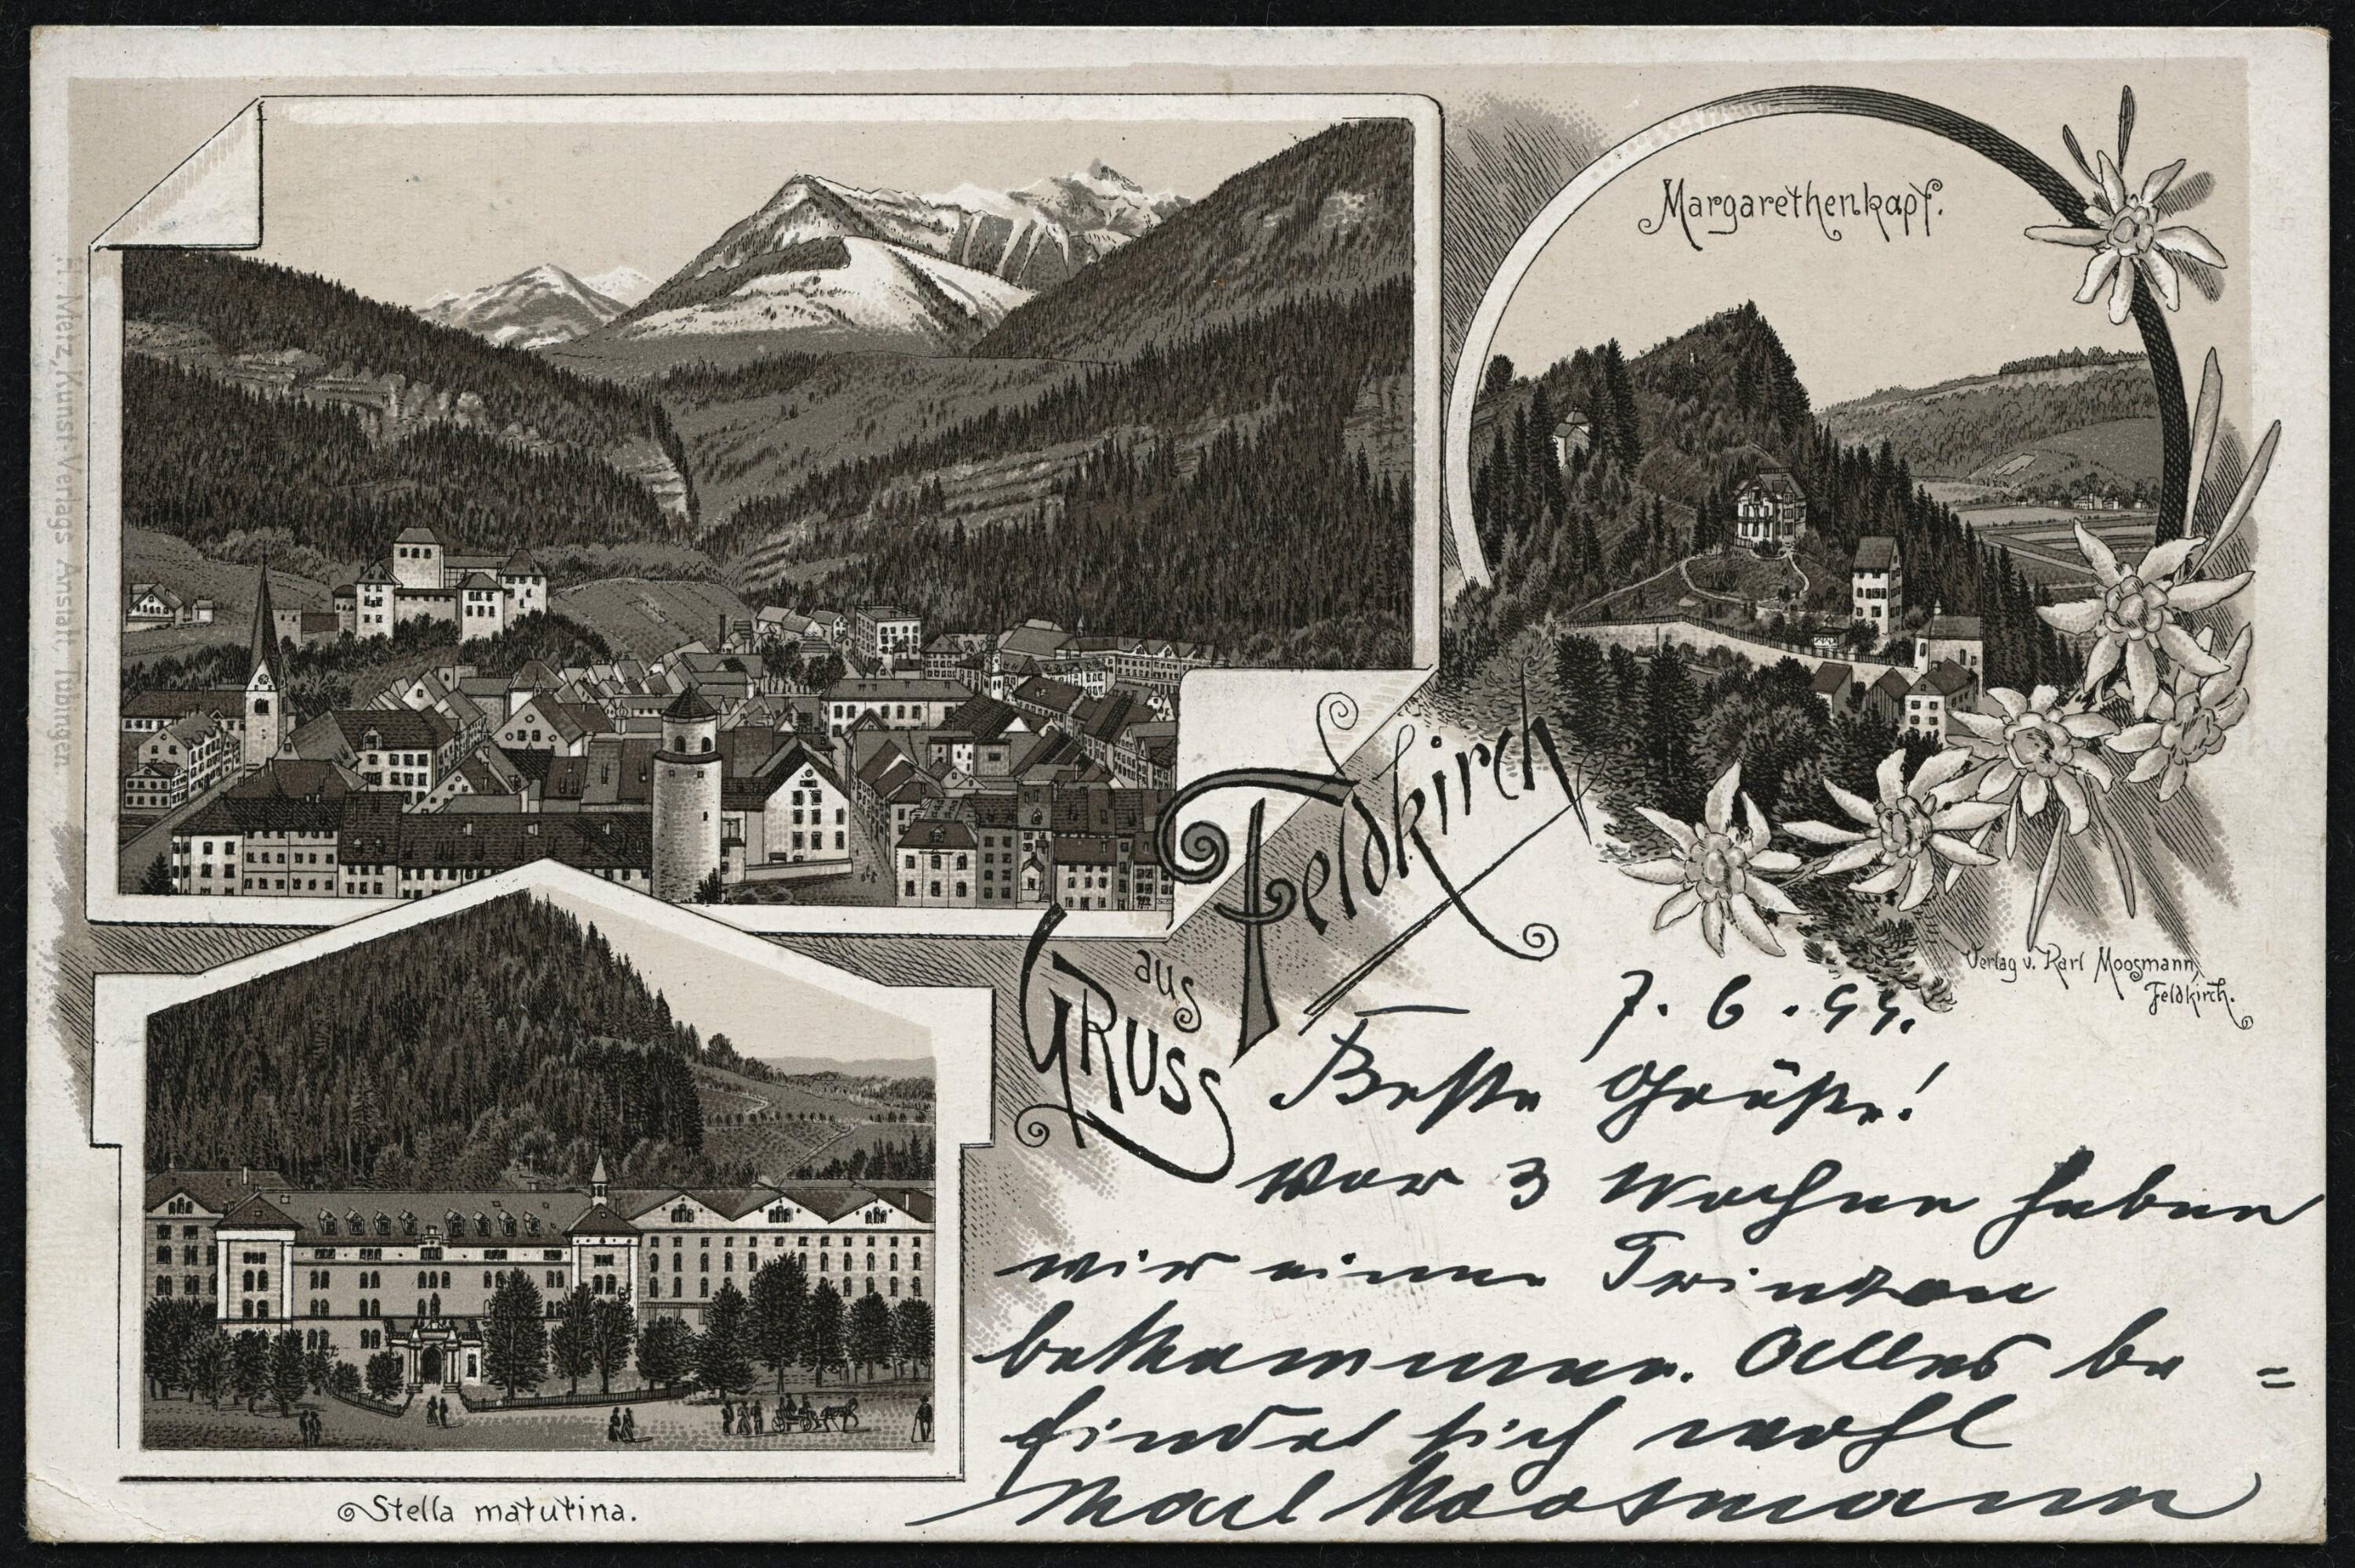 H. Metz, Kunst-Verlags-Anstalt, Tübingen.
Margarethenkapf.
Gruss
aus
Feldkirch
Verlag v. Karl Moosmann,
Feldkirch.
Stella matutina.
7. 6. 99.
Beste Grüße!
Vor 3 Wochen haben
wir einen
bekommen. Alles be=
findet sich wohl
Karl Moosmann